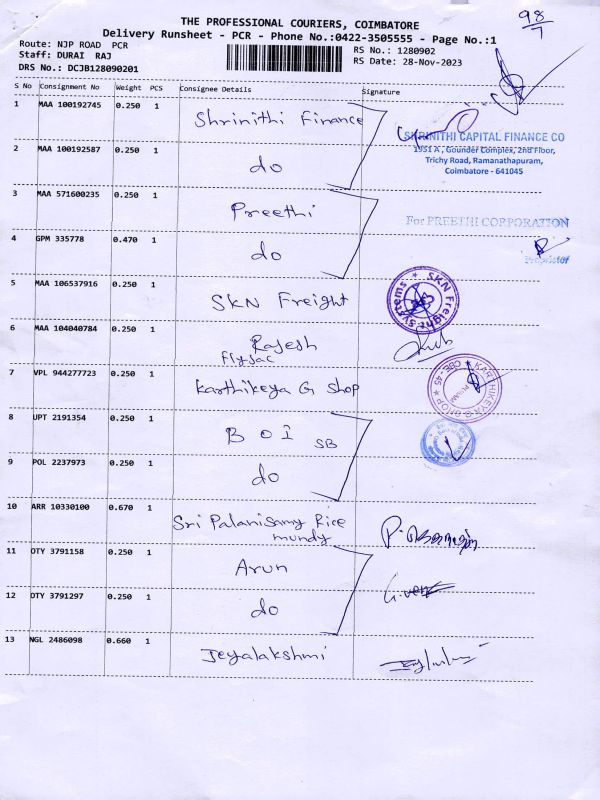 THE PROFESSIONAL COURIERS, COIMBATORE
98/7
Delivery Runsheet - PCR - Phone No.:0422-3505555 - Page No.:1
Route: NJP ROAD PCR
Staff: DURAI RAJ
DRS No.: DCJB128090201
RS No.: 1280902
RS Date: 28-Nov-2023
S No Consignment No Weight PCS Consignee Details Signature
1 MAA 100192745 0.250 1 Shrinithi Finance
SHRINITHI CAPITAL FINANCE CO
1951 A, Gounder Complex, 2nd Floor,
Trichy Road, Ramanathapuram,
Coimbatore - 641045
2 MAA 100192587 0.250 1 do
3 MAA 571600235 0.250 1 Preethi
For PREETHI CORPORATION
Proprietor
4 GPM 335778 0.470 1 do
5 MAA 106537916 0.250 1 SKN Freight
SKN Freight Systems
6 MAA 104040784 0.250 1 Rajesh
flysac
7 VPL 944277723 0.250 1 Karthikeya G Shop
KARTHIKEYA G SHOP
CBE. 45
8 UPT 2191354 0.250 1 B O I SB
9 POL 2237973 0.250 1 do
10 ARR 10330100 0.670 1 Sri Palanisamy Rice
mundy
11 OTY 3791158 0.250 1 Arun
12 OTY 3791297 0.250 1 do
13 NGL 2486098 0.660 1 Jeyalakshmi